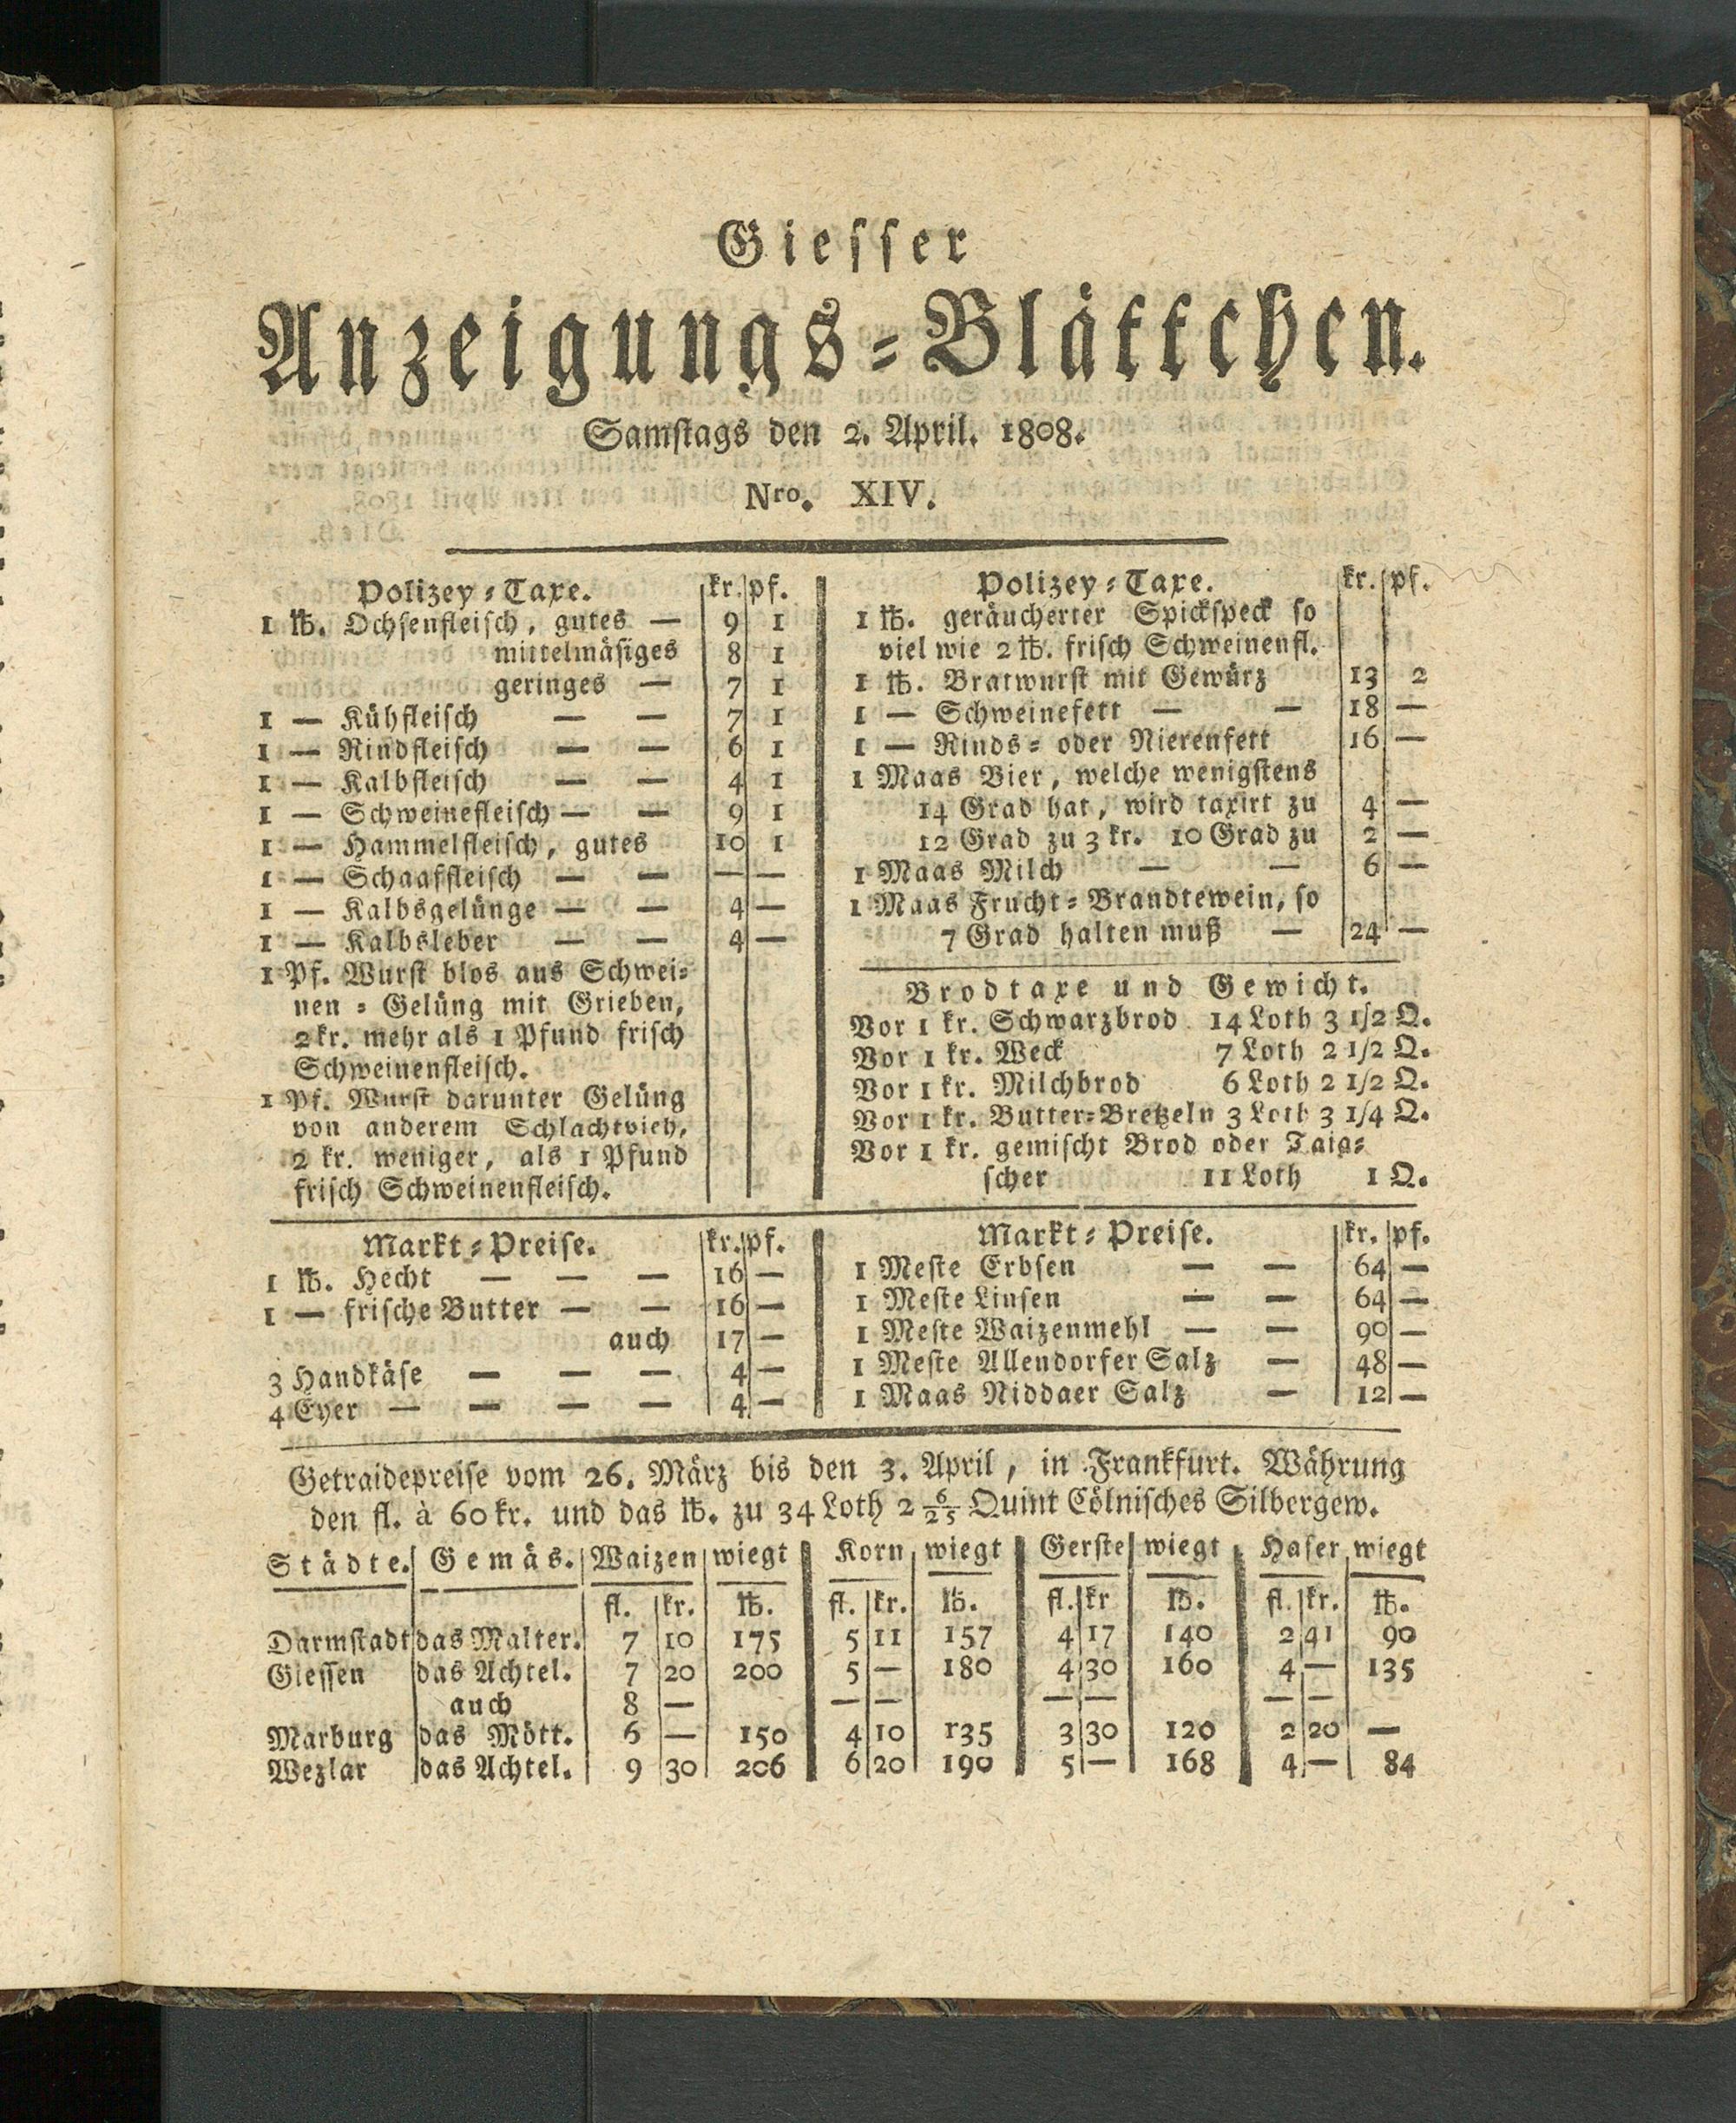 Giesser
Anzeigungs=Blättchen.
Samstags den 2. April. 1808.
Nro. XIV.
Polizey=Taxe. kr. pf.
1 ℔. Ochsenfleisch, gutes — 9 1
mittelmäsiges 8 1
geringes — 7 1
1 — Kühfleisch — — 7 1
1 — Rindfleisch — — 6 1
1 — Kalbfleisch — — 4 1
1 — Schweinefleisch — — 9 1
1 — Hammelfleisch, gutes 10 1
1 — Schaaffleisch — — — —
1 — Kalbsgelünge — — 4 —
1 — Kalbsleber — — 4 —
1 Pf. Wurst blos aus Schwei=
nen = Gelüng mit Grieben,
2 kr. mehr als 1 Pfund frisch
Schweinenfleisch.
1 Pf. Wurst darunter Gelüng
von anderem Schlachtvieh,
2 kr. weniger, als 1 Pfund
frisch Schweinenfleisch.
Polizey=Taxe. kr. pf.
1 ℔. geräucherter Spickspeck so
viel wie 2 ℔. frisch Schweinenfl.
1 ℔. Bratwurst mit Gewürz 13 2
1 — Schweinefett — — 18 —
1 — Rinds= oder Nierenfett 16 —
1 Maas Bier, welche wenigstens
14 Grad hat, wird taxirt zu 4 —
12 Grad zu 3 kr. 10 Grad zu 2 —
1 Maas Milch — — 6 —
1 Maas Frucht=Brandtewein, so
7 Grad halten muß — 24 —
Brodtaxe und Gewicht.
Vor 1 kr. Schwarzbrod 14 Loth 3 1/2 Q.
Vor 1 kr. Weck 7 Loth 2 1/2 Q.
Vor 1 kr. Milchbrod 6 Loth 2 1/2 Q.
Vor 1 kr. Butter=Bretzeln 3 Loth 3 1/4 Q.
Vor 1 kr. gemischt Brod oder Taig=
scher 11 Loth 1 Q.
Markt=Preise. kr. pf.
1 ℔. Hecht — — — 16 —
1 — frische Butter — — 16 —
auch 17 —
3 Handkäse — — — 4 —
4 Eyer — — — — 4 —
Markt=Preise. kr. pf.
1 Meste Erbsen — — 64 —
1 Meste Linsen — — 64 —
1 Meste Waizenmehl — — 90 —
1 Meste Allendorfer Salz — 48 —
1 Maas Niddaer Salz — 12 —
Getraidepreise vom 26. März bis den 3. April, in Frankfurt. Währung
den fl. à 60 kr. und das ℔. zu 34 Loth 2 6/25 Quint Cölnisches Silbergew.
Städte. Gemäs. Waizen wiegt Korn wiegt Gerste wiegt Hafer wiegt
fl. kr. ℔. fl. kr. ℔. fl. kr ℔. fl. kr. ℔.
Darmstadt das Malter. 7 10 175 5 11 157 4 17 140 2 41 90
Giessen das Achtel. 7 20 200 5 — 180 4 30 160 4 — 135
auch 8 — — — — — — —
Marburg das Mött. 6 — 150 4 10 135 3 30 120 2 20 —
Wezlar das Achtel. 9 30 206 6 20 190 5 — 168 4 — 84